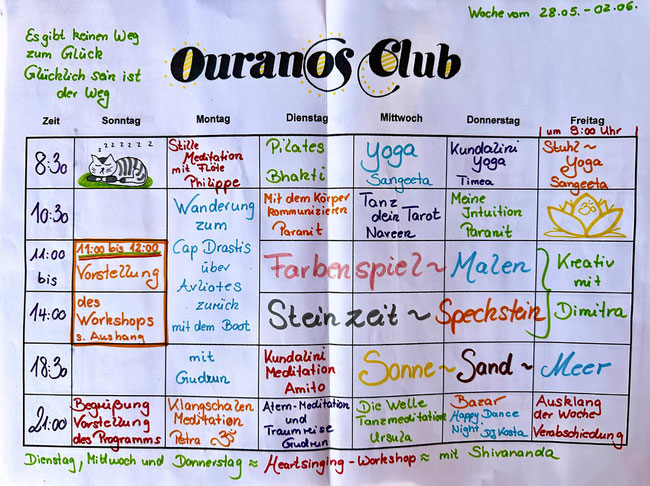 Woche vom 28.05. - 02.06.
Es gibt keinen Weg
zum Glück
Glücklich sein ist
der Weg
Ouranos Club
Zeit Sonntag Montag Dienstag Mittwoch Donnerstag Freitag
um 9:00 Uhr
8:30
z z z z z z z
Stille
Meditation
mit Flöte
Philippe
Pilates
Bhakti
Yoga
Sangeeta
Kundalini
Yoga
Timea
Stuhl~
Yoga
Sangeeta
10:30
Wanderung
zum
Cap Drastis
über
Avliotes
zurück
mit dem Boot
mit
Gudrun
Mit dem Körper
kommunizieren
Paranit
Tanz
dein Tarot
Naveen
Meine
Intuition
Paranit
11:00
bis
14:00
11:00 bis 12:00
Vorstellung
des
Workshops
s. Aushang
Farbenspiel ~ Malen
Steinzeit ~ Speckstein
Kreativ
mit
Dimitra
18:30
Kundalini
Meditation
Amito
Sonne ~ Sand ~ Meer
21:00
Begrüßung
Vorstellung
des Programms
Klangschalen
Meditation
Petra ॐ
Atem-Meditation
und
Traumreise
Gudrun
Die Welle
Tanzmeditation
Ursula
Bazar
Happy Dance
Night Kosta
Ausklang
der Woche
Verabschiedung
Dienstag, Mittwoch und Donnerstag ≈ Heartsinging-Workshop ≈ mit Shivananda